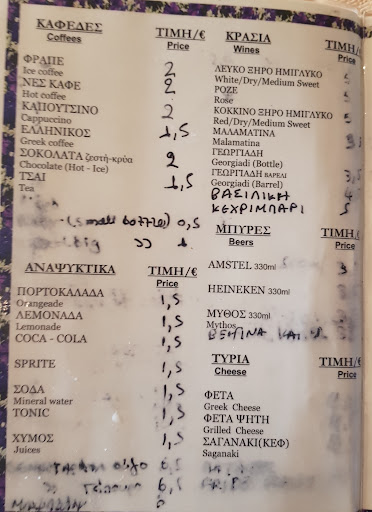 ΚΑΦΕΔΕΣ ΤΙΜΗ/€
Coffees Price
ΦΡΑΠΕ
Ice coffee 2
ΝΕΣ ΚΑΦΕ
Hot coffee 2
ΚΑΠΟΥΤΣΙΝΟ
Cappuccino 2
ΕΛΛΗΝΙΚΟΣ
Greek coffee 1,5
ΣΟΚΟΛΑΤΑ ζεστή-κρύα
Chocolate (Hot - Ice) 2
ΤΣΑΪ
Tea 1,5
(small bottle) 0,5
big 1
ΑΝΑΨΥΚΤΙΚΑ ΤΙΜΗ/€
Price
ΠΟΡΤΟΚΑΛΑΔΑ
Orangeade 1,5
ΛΕΜΟΝΑΔΑ
Lemonade 1,5
COCA - COLA 1,5
SPRITE 1,5
ΣΟΔΑ
Mineral water 1,5
TONIC 1,5
ΧΥΜΟΣ
Juices 1,5
6,5
6,5
6
ΚΡΑΣΙΑ ΤΙΜΗ/€
Wines Price
ΛΕΥΚΟ ΞΗΡΟ ΗΜΙΓΛΥΚΟ
White/Dry/Medium Sweet 5
ΡΟΖΕ
Rose
ΚΟΚΚΙΝΟ ΞΗΡΟ ΗΜΙΓΛΥΚΟ
Red/Dry/Medium Sweet 5
ΜΑΛΑΜΑΤΙΝΑ
Malamatina
ΓΕΩΡΓΙΑΔΗ
Georgiadi (Bottle)
ΓΕΩΡΓΙΑΔΗ ΒΑΡΕΛΙ
Georgiadi (Barrel)
ΒΑΣΙΛΙΚΗ
ΚΕΧΡΙΜΠΑΡΙ 5
ΜΠΥΡΕΣ ΤΙΜΗ/€
Beers Price
AMSTEL 330ml 3
HEINEKEN 330ml 3
ΜΥΘΟΣ 330ml
Mythos
ΒΕΡΓΙΝΑ
ΤΥΡΙΑ ΤΙΜΗ/€
Cheese Price
ΦΕΤΑ
Greek Cheese
ΦΕΤΑ ΨΗΤΗ
Grilled Cheese
ΣΑΓΑΝΑΚΙ(ΚΕΦ)
Saganaki